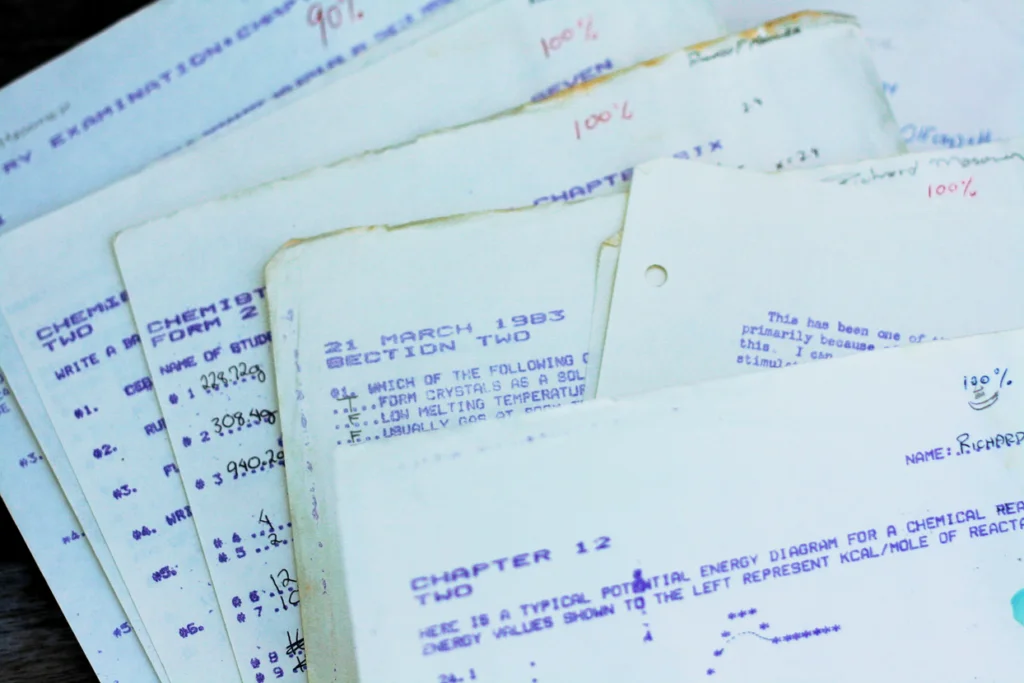 90%
RY EXAMINATION
100%
SEVEN
100%
24
CHAPTER SIX
x=24
Richard
100%
CHEMIS
TWO
WRITE A BA
#1.
#2.
#3.
#4. WRI
#5.
#6.
#3.
#4.
#5
CHEMIST
FORM 2
NAME OF STUDE
# 1 228.728g
# 2 308.48g
# 3 940.20
# 4 4
# 5 2
# 6 12
# 7 10
# 8
# 9
21 MARCH 1983
SECTION TWO
Q1. WHICH OF THE FOLLOWING
T FORM CRYSTALS AS A SOL
F LOW MELTING TEMPERATUR
F USUALLY GAS AT ROOM
This has been one of
primarily because
this. I can
stimul
100%
NAME: RICHARD
CHAPTER 12
TWO
HERE IS A TYPICAL POTENTIAL ENERGY DIAGRAM FOR A CHEMICAL REA
ENERGY VALUES SHOWN TO THE LEFT REPRESENT KCAL/MOLE OF REACTA
24.1